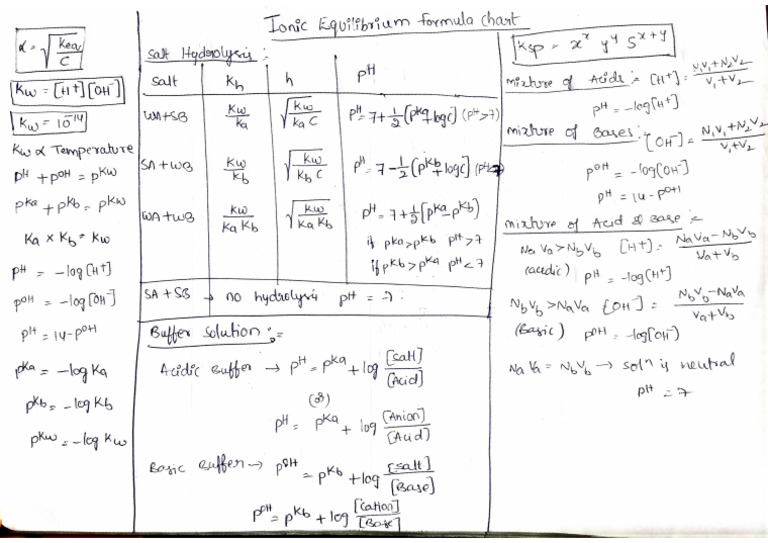 Ionic Equilibrium formula chart
α = √(Keq/C)
Kw = [H⁺][OH⁻]
Kw = 10⁻¹⁴
Kw α Temperature
pH + pOH = pKw
pKa + pKb = pKw
Ka × Kb = Kw
pH = -log[H⁺]
pOH = -log[OH⁻]
pH = 14 - pOH
pKa = -log Ka
pKb = -log Kb
pKw = -log Kw
Salt Hydrolysis :
Salt Kh h pH
WA+SB Kw/Ka √(Kw/Ka C) pH = 7 + 1/2 [pKa + logC] (pH > 7)
SA + WB Kw/Kb √(Kw/Kb C) pH = 7 - 1/2 [pKb + logC] (pH < 7)
WA+WB Kw/Ka Kb √(Kw/Ka Kb) pH = 7 + 1/2 [pKa - pKb]
if pKa > pKb pH > 7
if pKb > pKa pH < 7
SA + SB → no hydrolysis pH = 7
Buffer Solution :=
Acidic Buffer → pH = pKa + log [Salt]/[Acid]
(or)
pH = pKa + log [Anion]/[Acid]
Basic Buffer → pOH = pKb + log [Salt]/[Base]
pOH = pKb + log [Cation]/[Base]
Ksp = xˣ yʸ Sˣ⁺ʸ
mixture of Acids :- [H⁺] = N₁V₁+N₂V₂/V₁+V₂
pH = -log[H⁺]
mixture of Bases :- [OH⁻] = N₁V₁+N₂V₂/V₁+V₂
pOH = -log[OH⁻]
pH = 14 - pOH
mixture of Acid & Base :-
Na Va > Nb Vb [H⁺] = NaVa - NbVb/Va + Vb
(acidic) pH = -log[H⁺]
NbVb > NaVa [OH⁻] = NbVb - NaVa/Va + Vb
(Basic) pOH = -log[OH⁻]
Na Va = NbVb → solⁿ is neutral
pH = 7